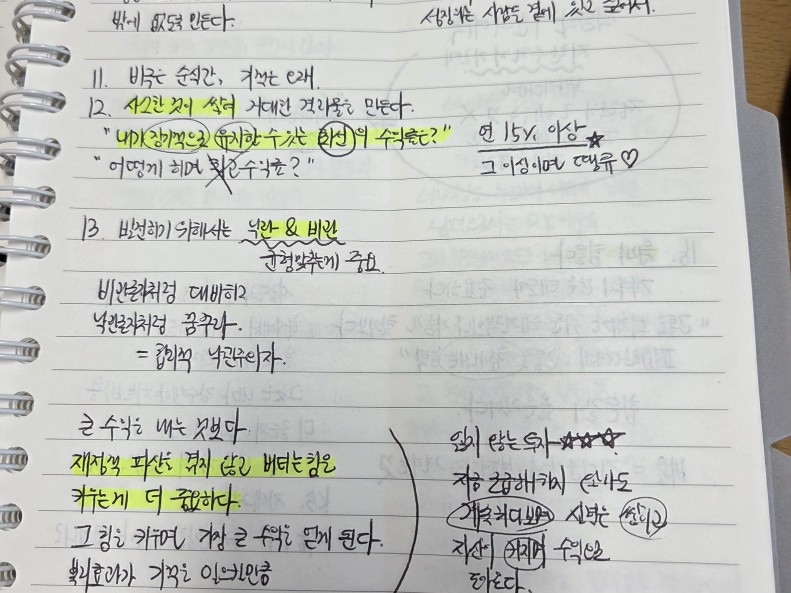 밖에 없도록 만든다.
성장하는 사람들 곁에 있고 싶어서.
11. 비극은 순식간, 기적은 오래.
12. 사소한 것이 쌓여 거대한 결과물을 만든다.
"내가 장기적으로 유지할 수 있는 최선의 수익률은?"
"어떻게 하면 최고 수익률?"
연 15% 이상
그 이상이면 땡큐♡
13. 발전하기 위해서는 낙관 & 비관
균형맞추는게 중요.
비관론자처럼 대비하고
낙관론자처럼 꿈꾸라.
= 합리적 낙관주의자.
큰 수익을 내는 것보다
재정적 파산을 겪지 않고 버티는 힘을
키우는게 더 중요하다.
그 힘을 키우면 가장 큰 수익을 얻게 된다.
복리효과가 기적을 일으킬만큼
잃지 않는 투자 ☆☆☆
지금 조급해하지 않아도
계속하다보면 신뢰는 쌓이고
자산이 커지며 수익은
따라온다.